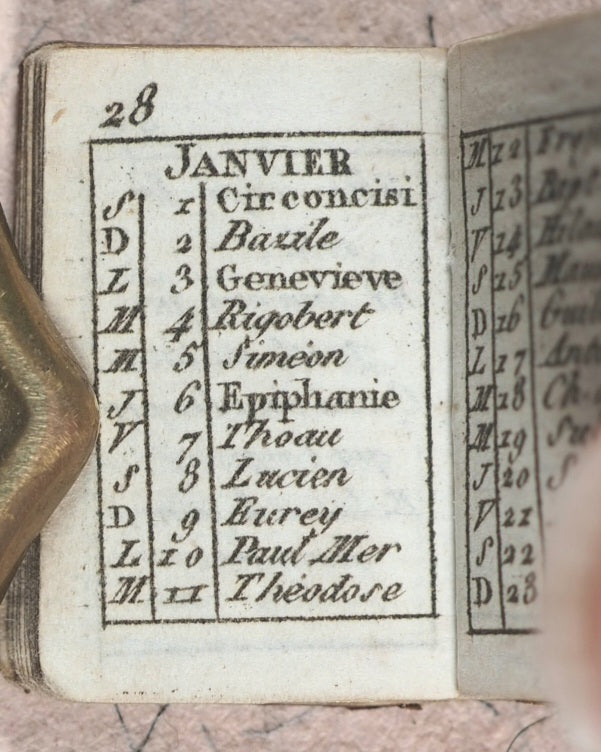 28
JANVIER
S 1 Circoncisi
D 2 Bazile
L 3 Genevieve
M 4 Rigobert
M 5 Siméon
J 6 Epiphanie
V 7 Thoau
S 8 Lucien
D 9 Eurey
L 10 Paul Mer
M 11 Théodose
M 12
J 13
V 14
S 15
D 16
L 17
M 18
M 19
J 20
V 21
S 22
D 23